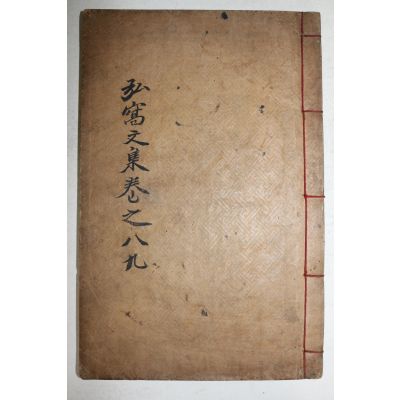 弘窩文集卷之八九